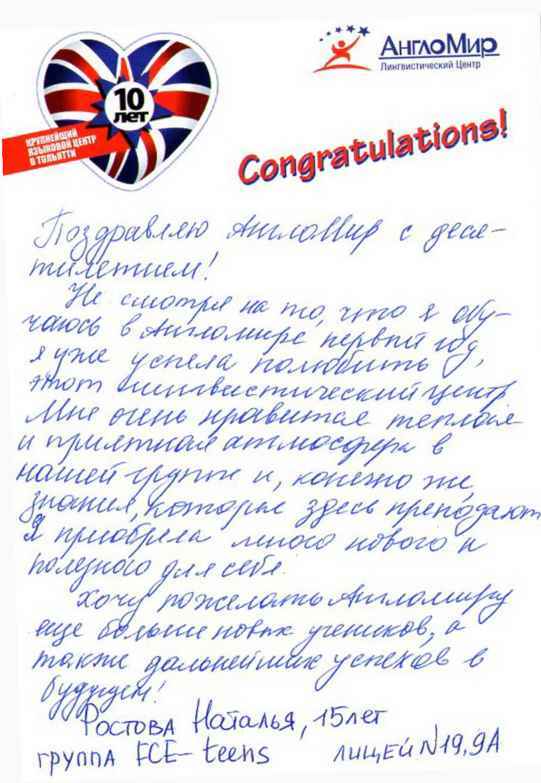 10
лет
КРУПНЕЙШИЙ
ЯЗЫКОВОЙ ЦЕНТР
В ТОЛЬЯТТИ
АнглоМир
Лингвистический Центр
Congratulations!
Поздравляю АнглоМир с деся-
тилетием!
Не смотря на то, что я обу-
чаюсь в Англомире первый год,
я уже успела полюбить
этот лингвистический центр.
Мне очень нравится теплая
и приятная атмосфера в
нашей группе и, конечно же,
знания, которые здесь преподают.
Я приобрела много нового и
полезного для себя.
Хочу пожелать Англомиру
еще больше новых учеников, а
также дальнейших успехов в
будущем!
Ростова Наталья, 15 лет
группа FCE-teens лицей N19, 9А